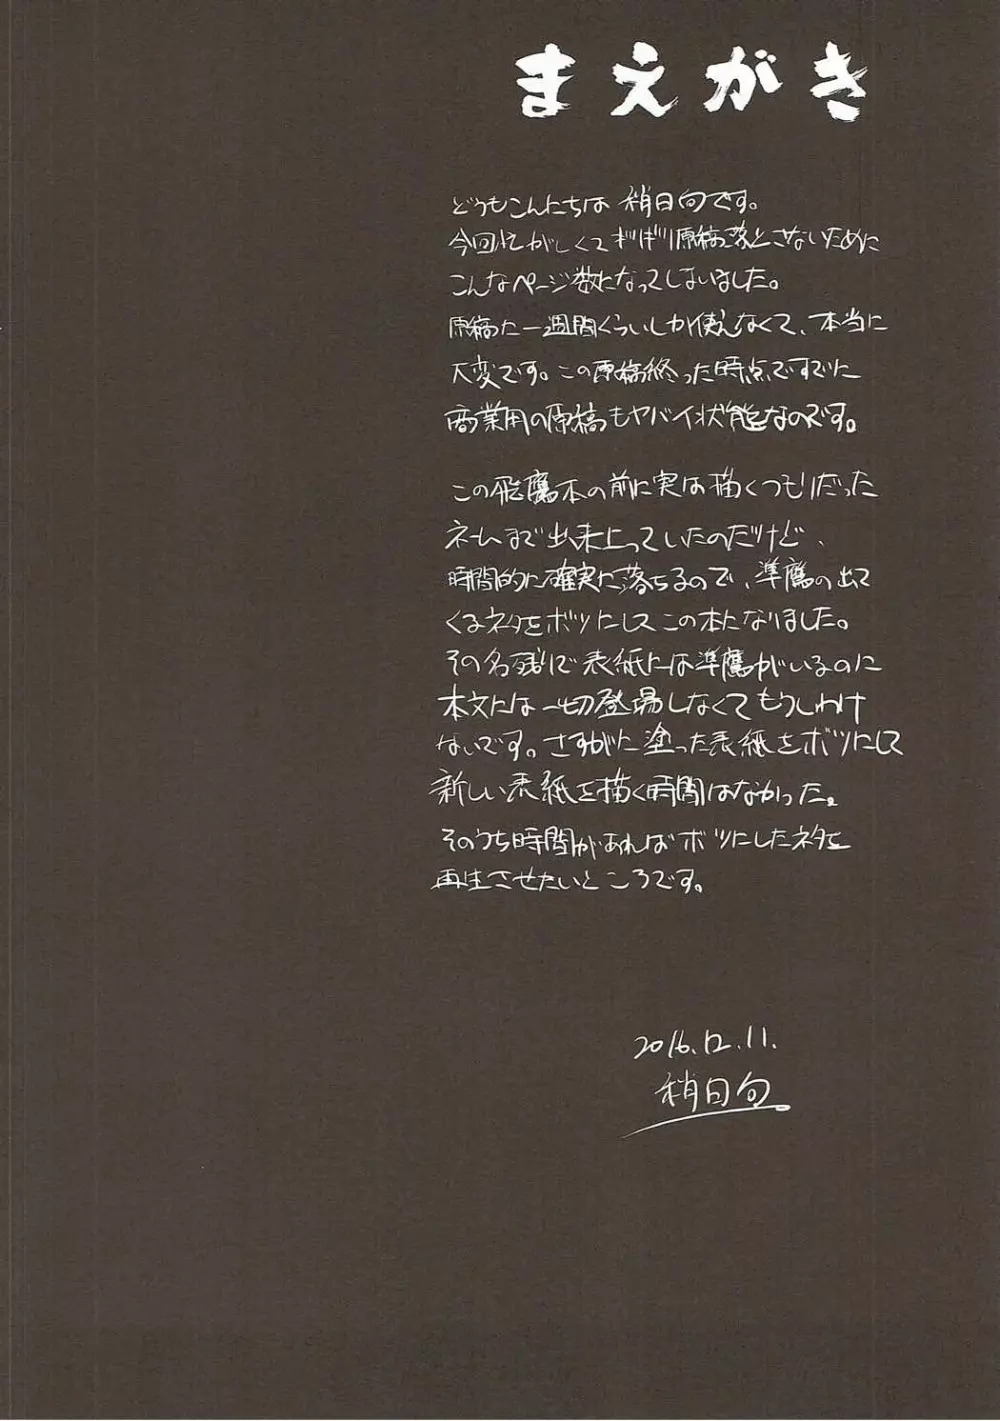 まえがき
どうもこんにちは 梢日旬です。
今回忙がしくてギリギリ原稿落とさないために
こんなページ数になってしまいました。
原稿に一週間くらいしか使えなくて、本当に
大変です。この原稿終った時点ですでに
商業用の原稿もヤバイ状態なのです。
この飛鷹本の前に実は描くつもりだった
ネームまで出来上っていたのだけど、
時間的に確実に落ちるので、準鷹の出て
くるネタをボツにしてこの本になりました。
その名残りで表紙には準鷹がいるのに
本文には一切登場しなくてもうしわけ
ないです。さすがに塗った表紙をボツにして
新しい表紙を描く時間はなかった。
そのうち時間があればボツにしたネタを
再生させたいところです。
2016.12.11.
梢日旬